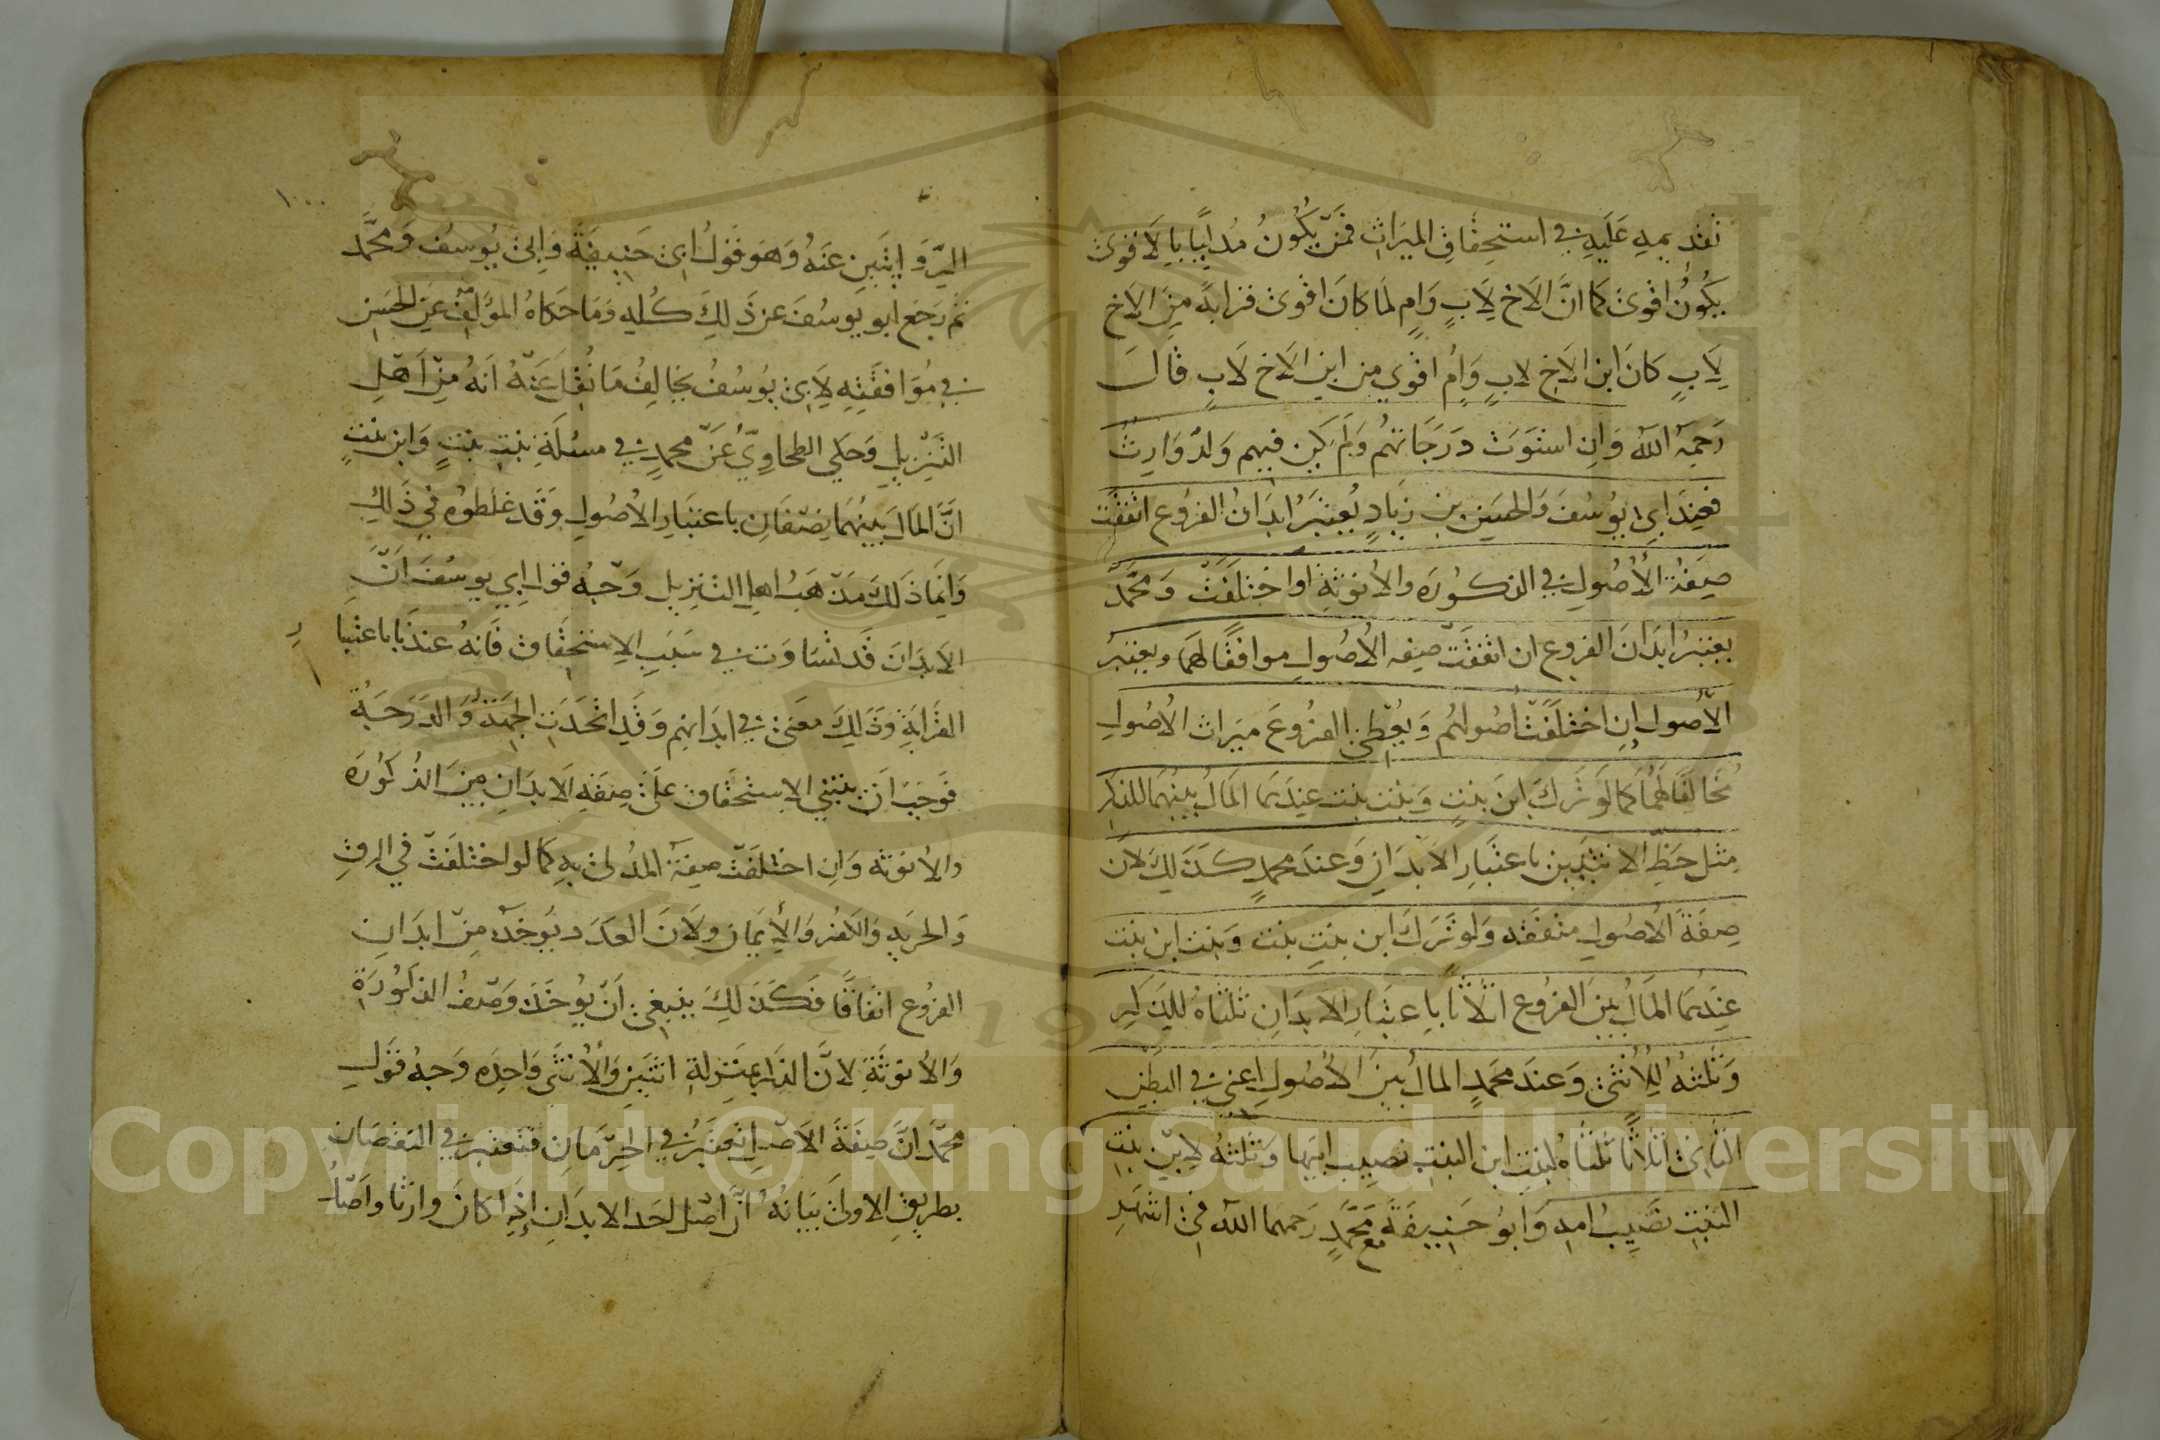 تقديمه عليه في استحقاق الميراث فمن يكون مدليًا بالاقوى
يكون اقوى كما ان الاخ لاب وام لما كان اقوى قرابة من الاخ
لاب كان ابن الاخ لاب وام اقوي من ابن الاخ لاب قال
رحمه الله وان استوت درجاتهم ولم يكن فيهم ولد وارث
فعند ابي يوسف والحسن بن زياد يعتبر ابدان الفروع اتفقت
صفة الأصول في الذكوره والأنوثة او اختلفت ومحمد
يعتبر ابدان الفروع ان اتفقت صفه الأصول موافقًا لهما ويعتبر
الأصول ان اختلفت أصولهم ويعطى الفروع ميراث الاصول
مخالفًا لهما كما لو ترك ابن بنت وبنت بنت عندهما المال بينهما للذكر
مثل حظ الانثيين باعتبار الابدان وعند محمد كذلك لان
صفة الاصول متفقه ولو ترك ابن بنت بنت وبنت ابن بنت
عندهما المال بين الفروع اثلاثا باعتبار الابدان ثلثاه للذكر
وثلثه للأنثى وعند محمد المال بين الأصول اعني في البطن
الثاني اثلاثًا ثلثاه لبنت ابن البنت نصيب ابيها وثلثه لابن بنت
البنت نصيب امه وابو حنيفة مع محمد رحمهما الله في اشهر
١٠٠
الروايتين عنه وهو قول ابي حنيفة وابي يوسف ومحمد
ثم رجع ابو يوسف عن ذلك كله وما حكاه المؤلف عن الحسن
في موافقته لابي يوسف يخالف ما نقل عنه انه من اهل
التنزيل وحكي الطحاوي عن محمد في مسئلة بنت بنت وابن بنت
ان المال بينهما نصفان باعتبار الأصول وقد غلطوه في ذلك
وانما ذلك مذهب اهل التنزيل وجه قول ابي يوسف ان
الابدان قد تساوت في سبب الاستحقاق فانه عندنا باعتبا
ر
القرابة وذلك معنى في ابدانهم وقد اتحدت الجهة والدرجة
فوجب ان يبتني الاستحقاق على صفة الابدان من الذكوره
والأنوثه وان اختلفت صفة المدلى به كما لو اختلفت في الرق
والحريه والكفر والأيمان ولان العدد يؤخذ من ابدان
الفروع اتفاقًا فكذلك ينبغي ان يؤخذ وصف الذكورة
والأنوثة لان الذكر بمنزلة انثيين والأنثى واحده وجه قول
محمد ان صفة الاصل تعتبر في الحرمان فتعتبر في النقصان
بطريق الاولى بيانه ان اصل احد الابدان إذا كان وارثا واصل
Copyright © King Saud University